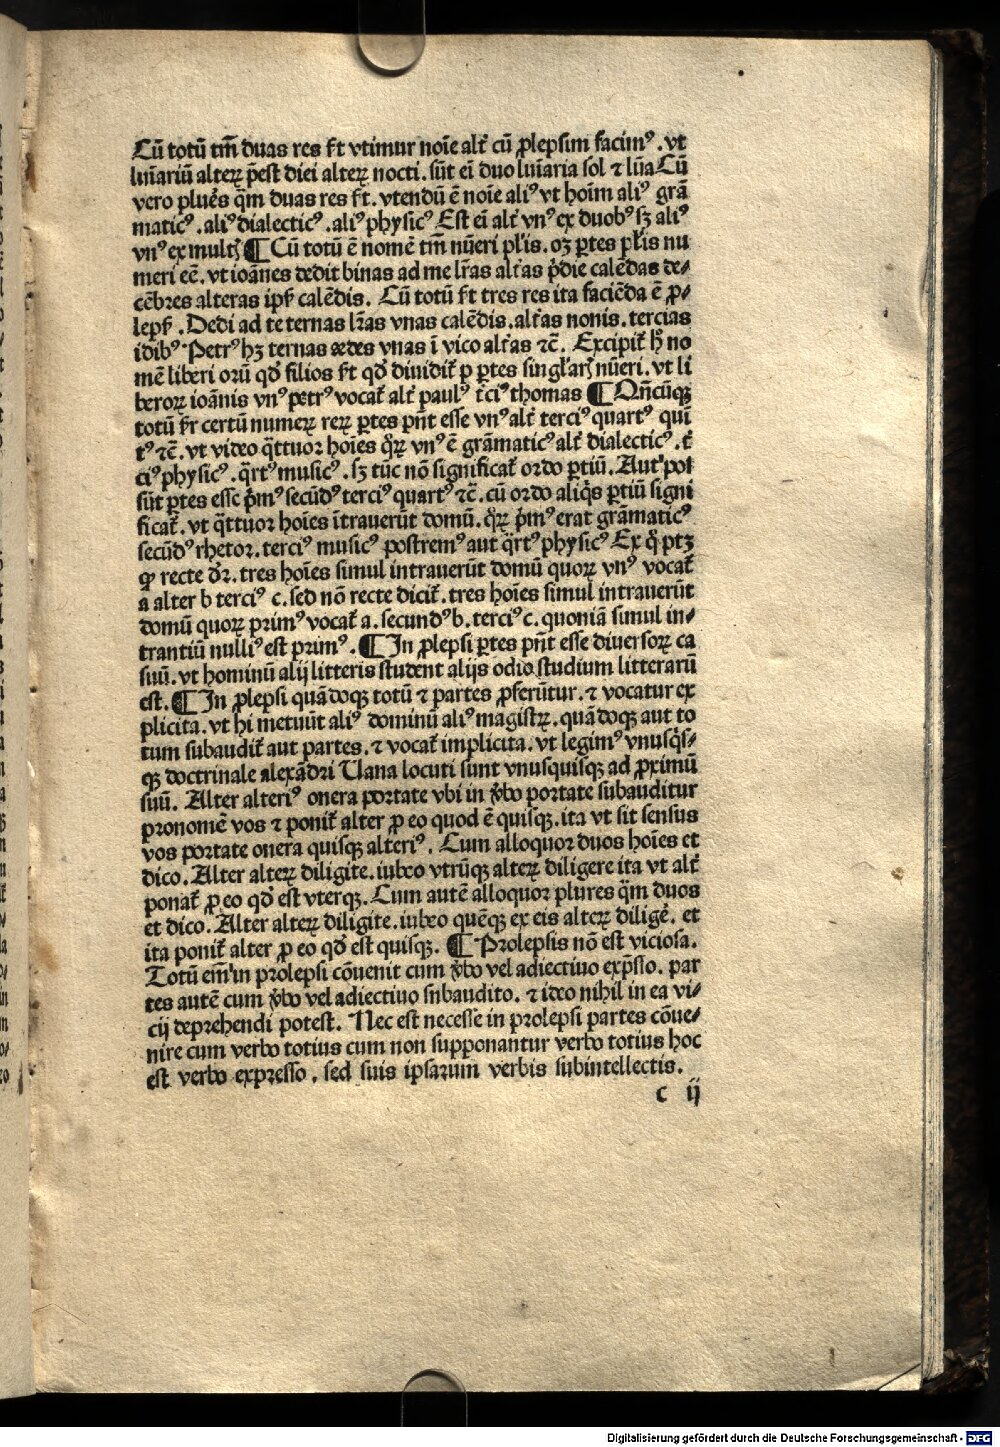 Cū totū tm̄ duas res ſt̄ vtimur noīe alt̄ cū ꝓlepſim facimꝰ. vt
luīariū alterꝝ p̄eſt diei alterꝝ nocti. ſūt eī duo luīaria ſol ⁊ lūa Cū
vero plures q̄m duas res ſt̄. vtendū ē noīe aliꝰ vt hoīm aliꝰ grā
maticꝰ. aliꝰ dialecticꝰ. aliꝰ phyſicꝰ Eſt eī alt̄ vnꝰ ex duobꝰ ſꝫ aliꝰ
vnꝰ ex multꝭ ¶ Cū totū ē nomē tm̄ nūeri pl̄is. oꝫ ꝑtes pl̄is nu
meri eē. vt ioānes dedit binas ad me lr̄as alt̄as p̄die calēdas de⸗
cēbres alteras ipſ̄ calēdis. Cū totū ſt̄ tres res ita faciēda ē ꝓ⸗
lepſ̄. Dedi ad te ternas lr̄as vnas calēdis. alt̄as nonis. tercias
idibꝰ Petrꝰ hꝫ ternas ædes vnas ī vico alt̄as ⁊c̄. Excipit̄ h̄ no
mē liberi orū qd̄ filios ſt̄ qd̄ diuidit̄ ꝑ ꝑtes ſingl̄arꝭ nūeri. vt li
berorꝝ ioānis vnꝰ petrꝰ vocat̄ alt̄ paulꝰ t̄ciꝰ thomas ¶ Qn̄cūqꝫ
totū ſt̄r certū numerꝝ rerꝝ ꝑtes pn̄t eſſe vnꝰ alt̄ terciꝰ quartꝰ quī
tꝰ ⁊c̄. vt video q̄ttuor hoīes q̄rꝝ vnꝰ ē grāmaticꝰ alt̄ dialecticꝰ. t̄
ciꝰ phyſicꝰ. q̄rtꝰ muſicꝰ. ſꝫ tūc nō ſignificat̄ ordo ꝑtiū. Aut poſ
ſūt ꝑtes eſſe p̄mꝰ ſecūdꝰ terciꝰ quartꝰ ⁊c̄. cū ordo aliq̄s ꝑtiū ſigni
ficat̄. vt q̄ttuor hoīes ītrauerūt domū. q̄rꝝ p̄mꝰ erat grāmaticꝰ
ſecūdꝰ rhetor. terciꝰ muſicꝰ poſtremꝰ aut q̄rtꝰ phyſicꝰ Ex q̄ ptꝫ
ꝙ recte dr̄. tres hoīes ſimul intrauerūt domū quorꝝ vnꝰ vocat̄
a alter b terciꝰ c. ſed nō recte dicit̄. tres hoīes ſimul intrauerūt
domū quorꝝ primꝰ vocat̄ a. ſecundꝰ b. terciꝰ c. quoniā ſimul in⸗
trantiū nulliꝰ eſt primꝰ. ¶ In ꝓlepſi ꝑtes pn̄t eſſe diuerſorꝝ ca
ſuū. vt hominū alij litteris ſtudent alijs odio ſtudium litterarū
eſt. ¶ In ꝓlepſi quādoqꝫ totū ⁊ partes ꝓferūtur. ⁊ vocatur ex
plicita. vt hi metuūt aliꝰ dominū aliꝰ magiſtrꝝ. quādoqꝫ aut to
tum ſubaudit̄ aut partes. ⁊ vocat̄ implicita. vt legimꝰ vnuſq̄ſ⸗
qꝫ doctrinale alexādri Uana locuti ſunt vnuſquiſqꝫ ad ꝓximū
ſuū. Alter alteriꝰ onera portate vbi in v̄bo portate ſubauditur
pronomē vos ⁊ ponit̄ alter ꝓ eo quod ē quiſqꝫ. ita vt ſit ſenſus
vos portate onera quiſqꝫ alteriꝰ. Cum alloquor duos hoīes et
dico. Alter alterꝝ diligite. iubeo vtrūqꝫ alterꝝ diligere ita vt alt̄
ponat̄ ꝓ eo qd̄ eſt vterqꝫ. Cum autē alloquor plures q̄m duos
et dico. Alter alterꝝ diligite. iubeo quēqꝫ ex eis alterꝝ diligē. et
ita ponit̄ alter ꝓ eo qd̄ eſt quiſqꝫ. ¶ Prolepſis nō eſt vicioſa.
Totū em̄ in prolepſi cōuenit cum v̄bo vel adiectiuo exp̄ſſo. par
tes autē cum v̄bo vel adiectiuo ſnbaudito. ⁊ ideo nihil in ea vi⸗
cij deprehendi poteſt. Nec eſt neceſſe in prolepſi partes cōue⸗
nire cum verbo totius cum non ſupponantur verbo totius hoc
eſt verbo expreſſo. ſed ſuis ipſarum verbis ſubintellectis.
c ij
Digitalisierung gefördert durch die Deutsche Forschungsgemeinschaft - DFG